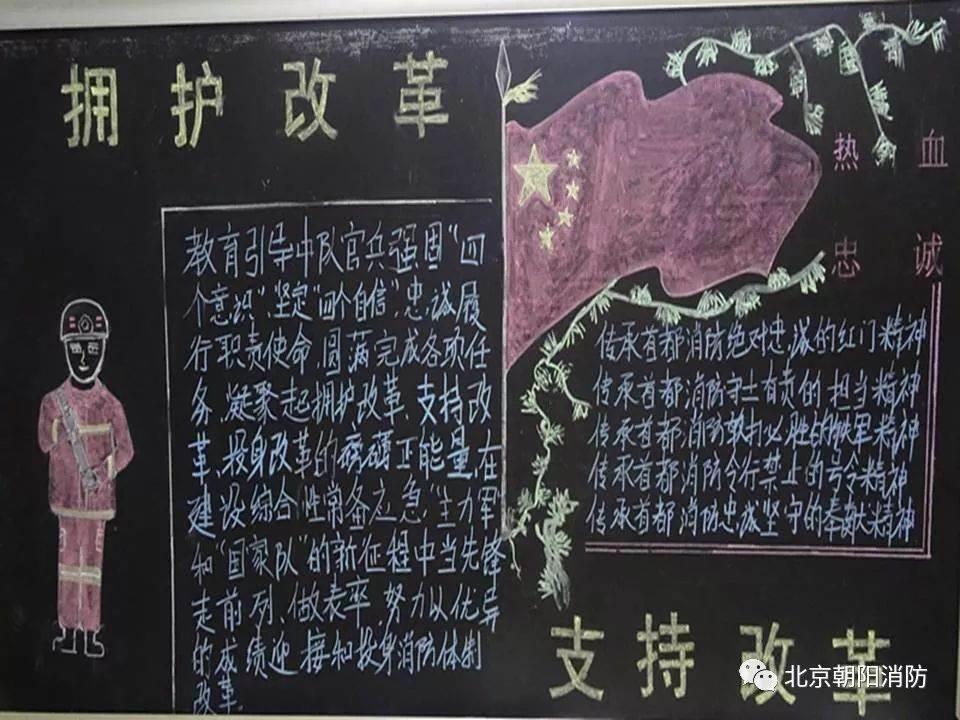 拥护改革
教育引导中队官兵强固“四
个意识”、坚定“四个自信”,忠诚履
行职责使命,圆满完成各项任
务,凝聚起拥护改革、支持改
革、投身改革的磅礴正能量,在
建设综合性常备应急“主力军”
和“国家队”的新征程中当先锋
走前列、做表率,努力以优异
的成绩迎接和投身消防体制
改革.
热血
忠诚
传承首都消防绝对忠诚的红门精神
传承首都消防守土有责的担当精神
传承首都消防敢打必胜的铁军精神
传承首都消防令行禁止的号令精神
传承首都消防忠诚坚守的奉献精神
支持改革
北京朝阳消防